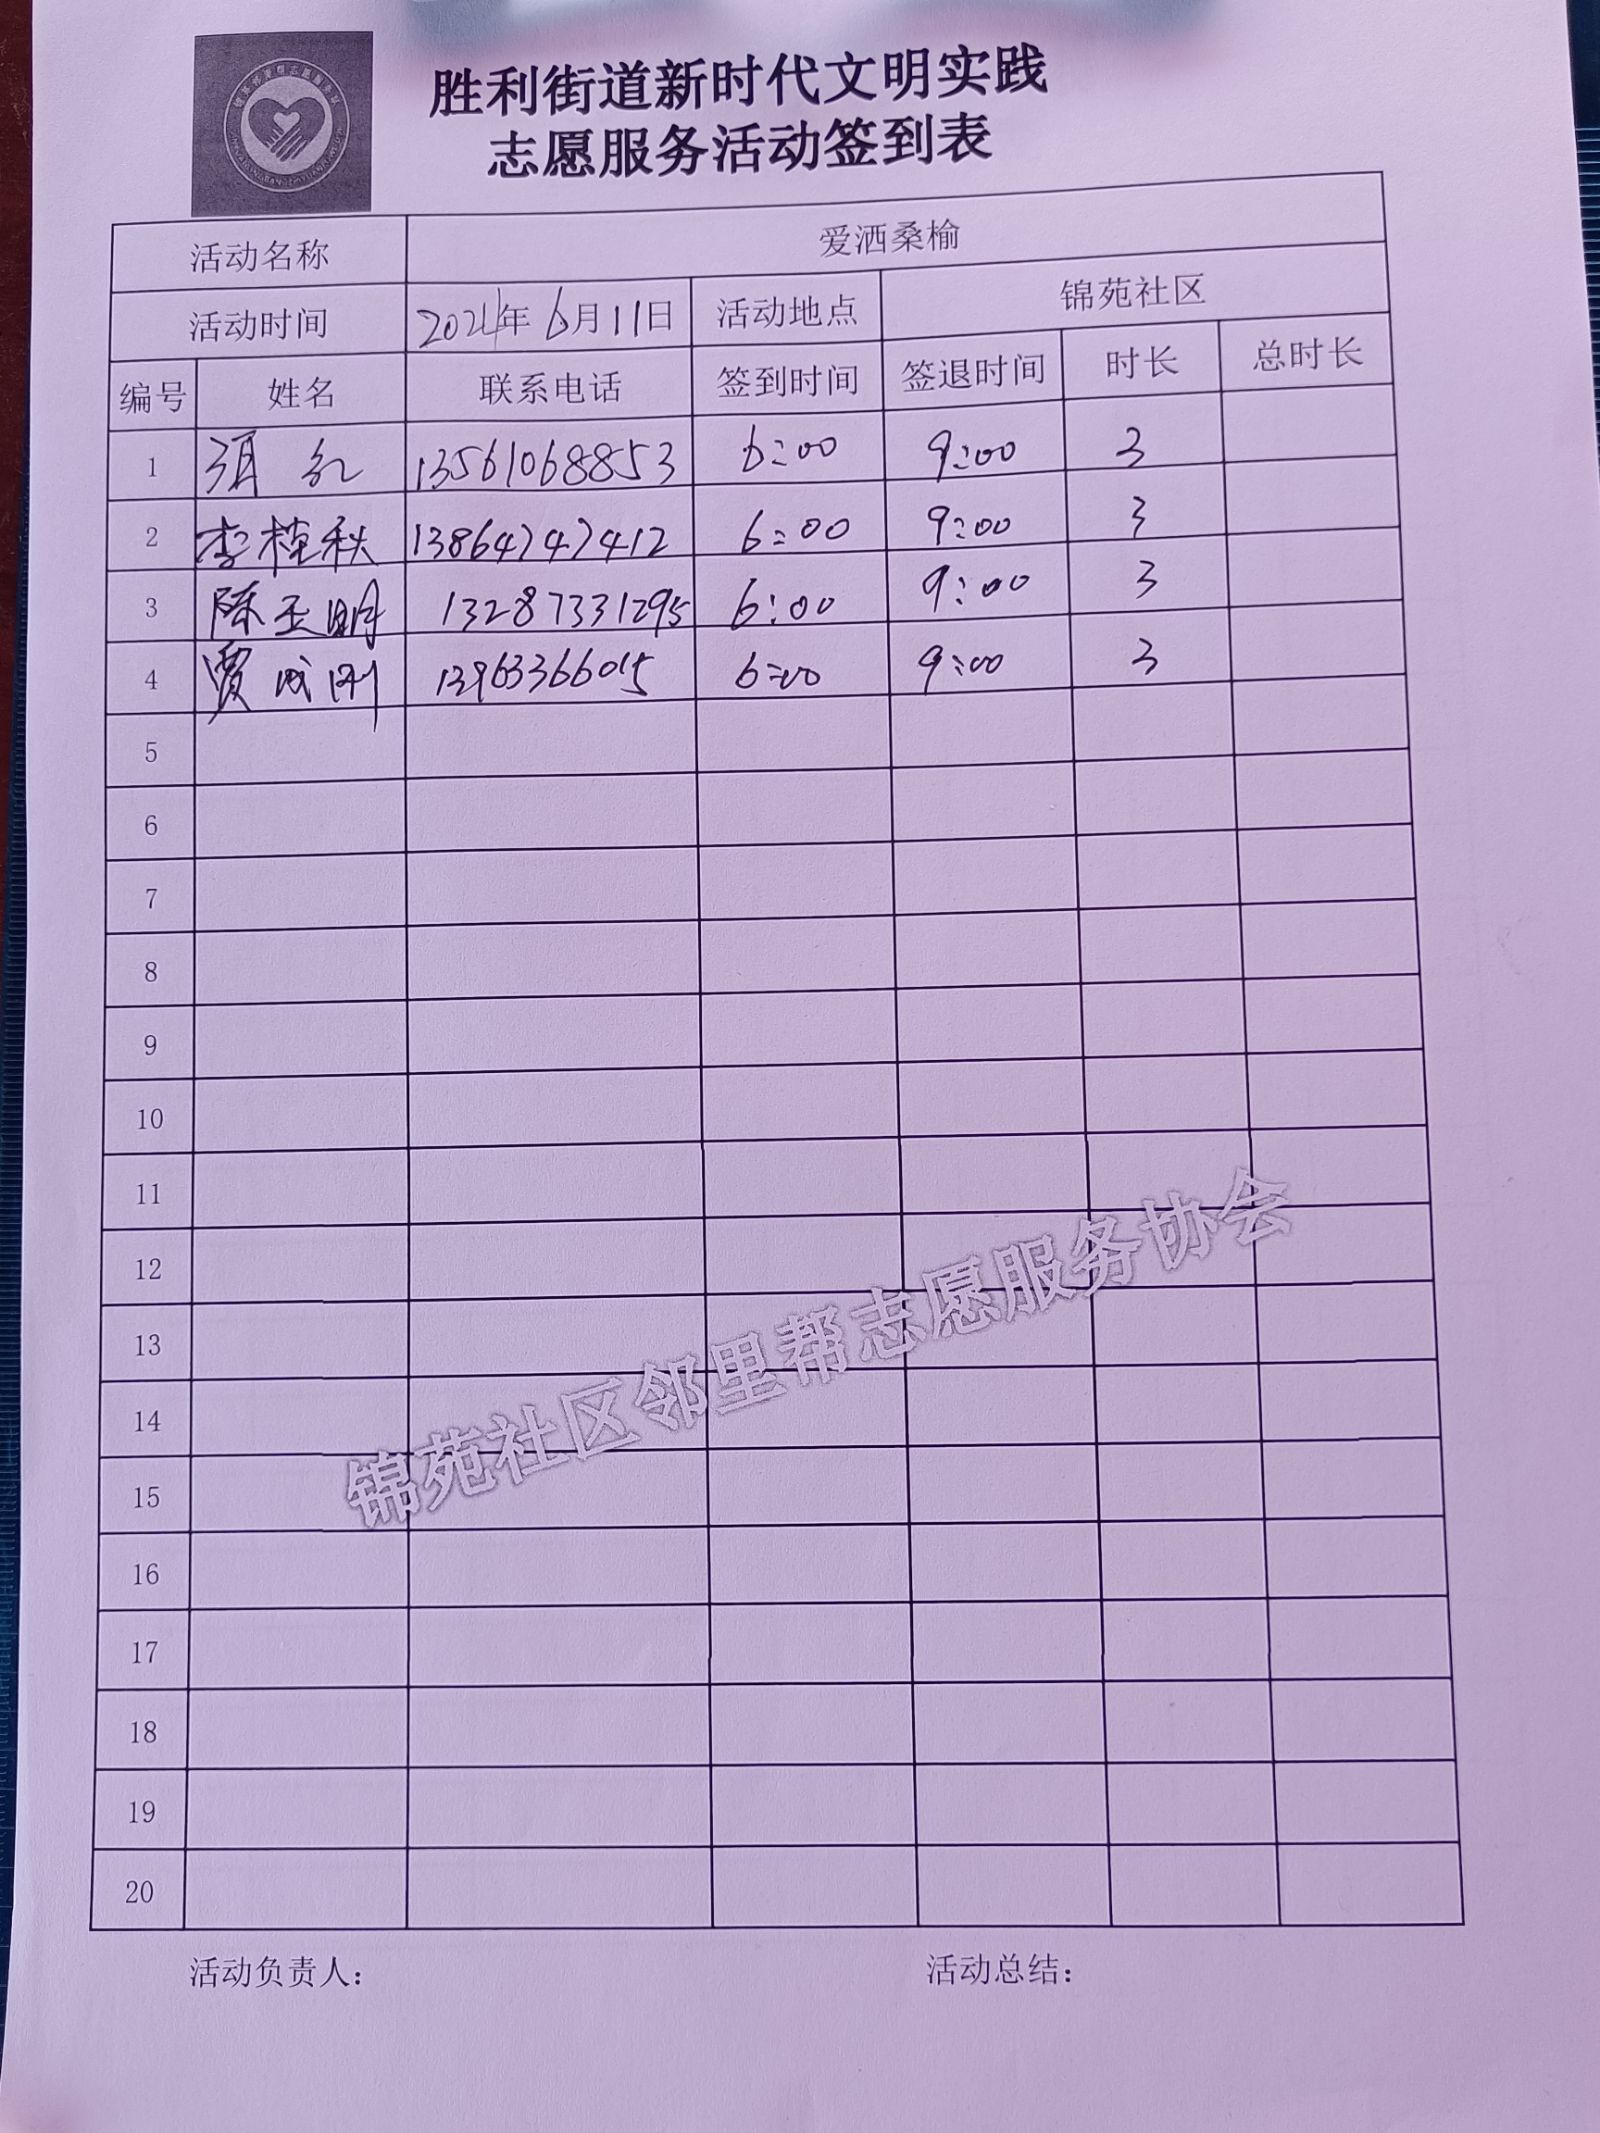 胜利街道新时代文明实践
志愿服务活动签到表
活动名称 爱洒桑榆
活动时间 2024年 6月11日 活动地点 锦苑社区
编号 姓名 联系电话 签到时间 签退时间 时长 总时长
1 13561068853 6:00 9:00 3
2 李桂秋 13864747412 6:00 9:00 3
3 陈玉明 13287331295 6:00 9:00 3
4 贾成刚 13963366015 6:00 9:00 3
5
6
7
8
9
10
11
12
13
14
15
16
17
18
19
20
锦苑社区邻里帮志愿服务协会
活动负责人： 活动总结：